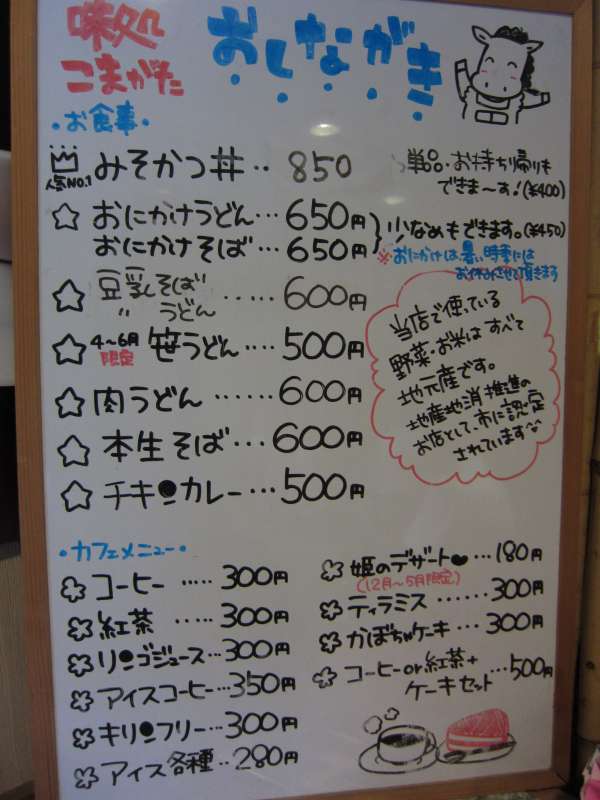 味処
こまがた
おしながき
・お食事・
人気NO.1 みそかつ丼‥850
単品・お持ち帰りも
できま〜す!(¥400)
☆ おにかけうどん…650円
おにかけそば…650円
少なめもできます。(¥450)
※おにかけは、暑い時季には
お休みさせて頂きます
☆ 豆乳そば ……600円
〃 うどん
☆ 4〜6月限定 笹うどん…500円
☆ 肉うどん……600円
☆ 本生そば…600円
☆ チキンカレー…500円
当店で使っている
野菜・お米は すべて
地元産です。
地産地消推進の
お店として、市に認定
されています^^
・カフェメニュー・
コーヒー ……300円
紅茶 ……300円
リンゴジュース…300円
アイスコーヒー…350円
キリンフリー…300円
アイス各種‥280円
姫のデザート…180円
(12月〜5月限定)
ティラミス ……300円
かぼちゃケーキ…300円
コーヒーor紅茶+
ケーキセット…500円